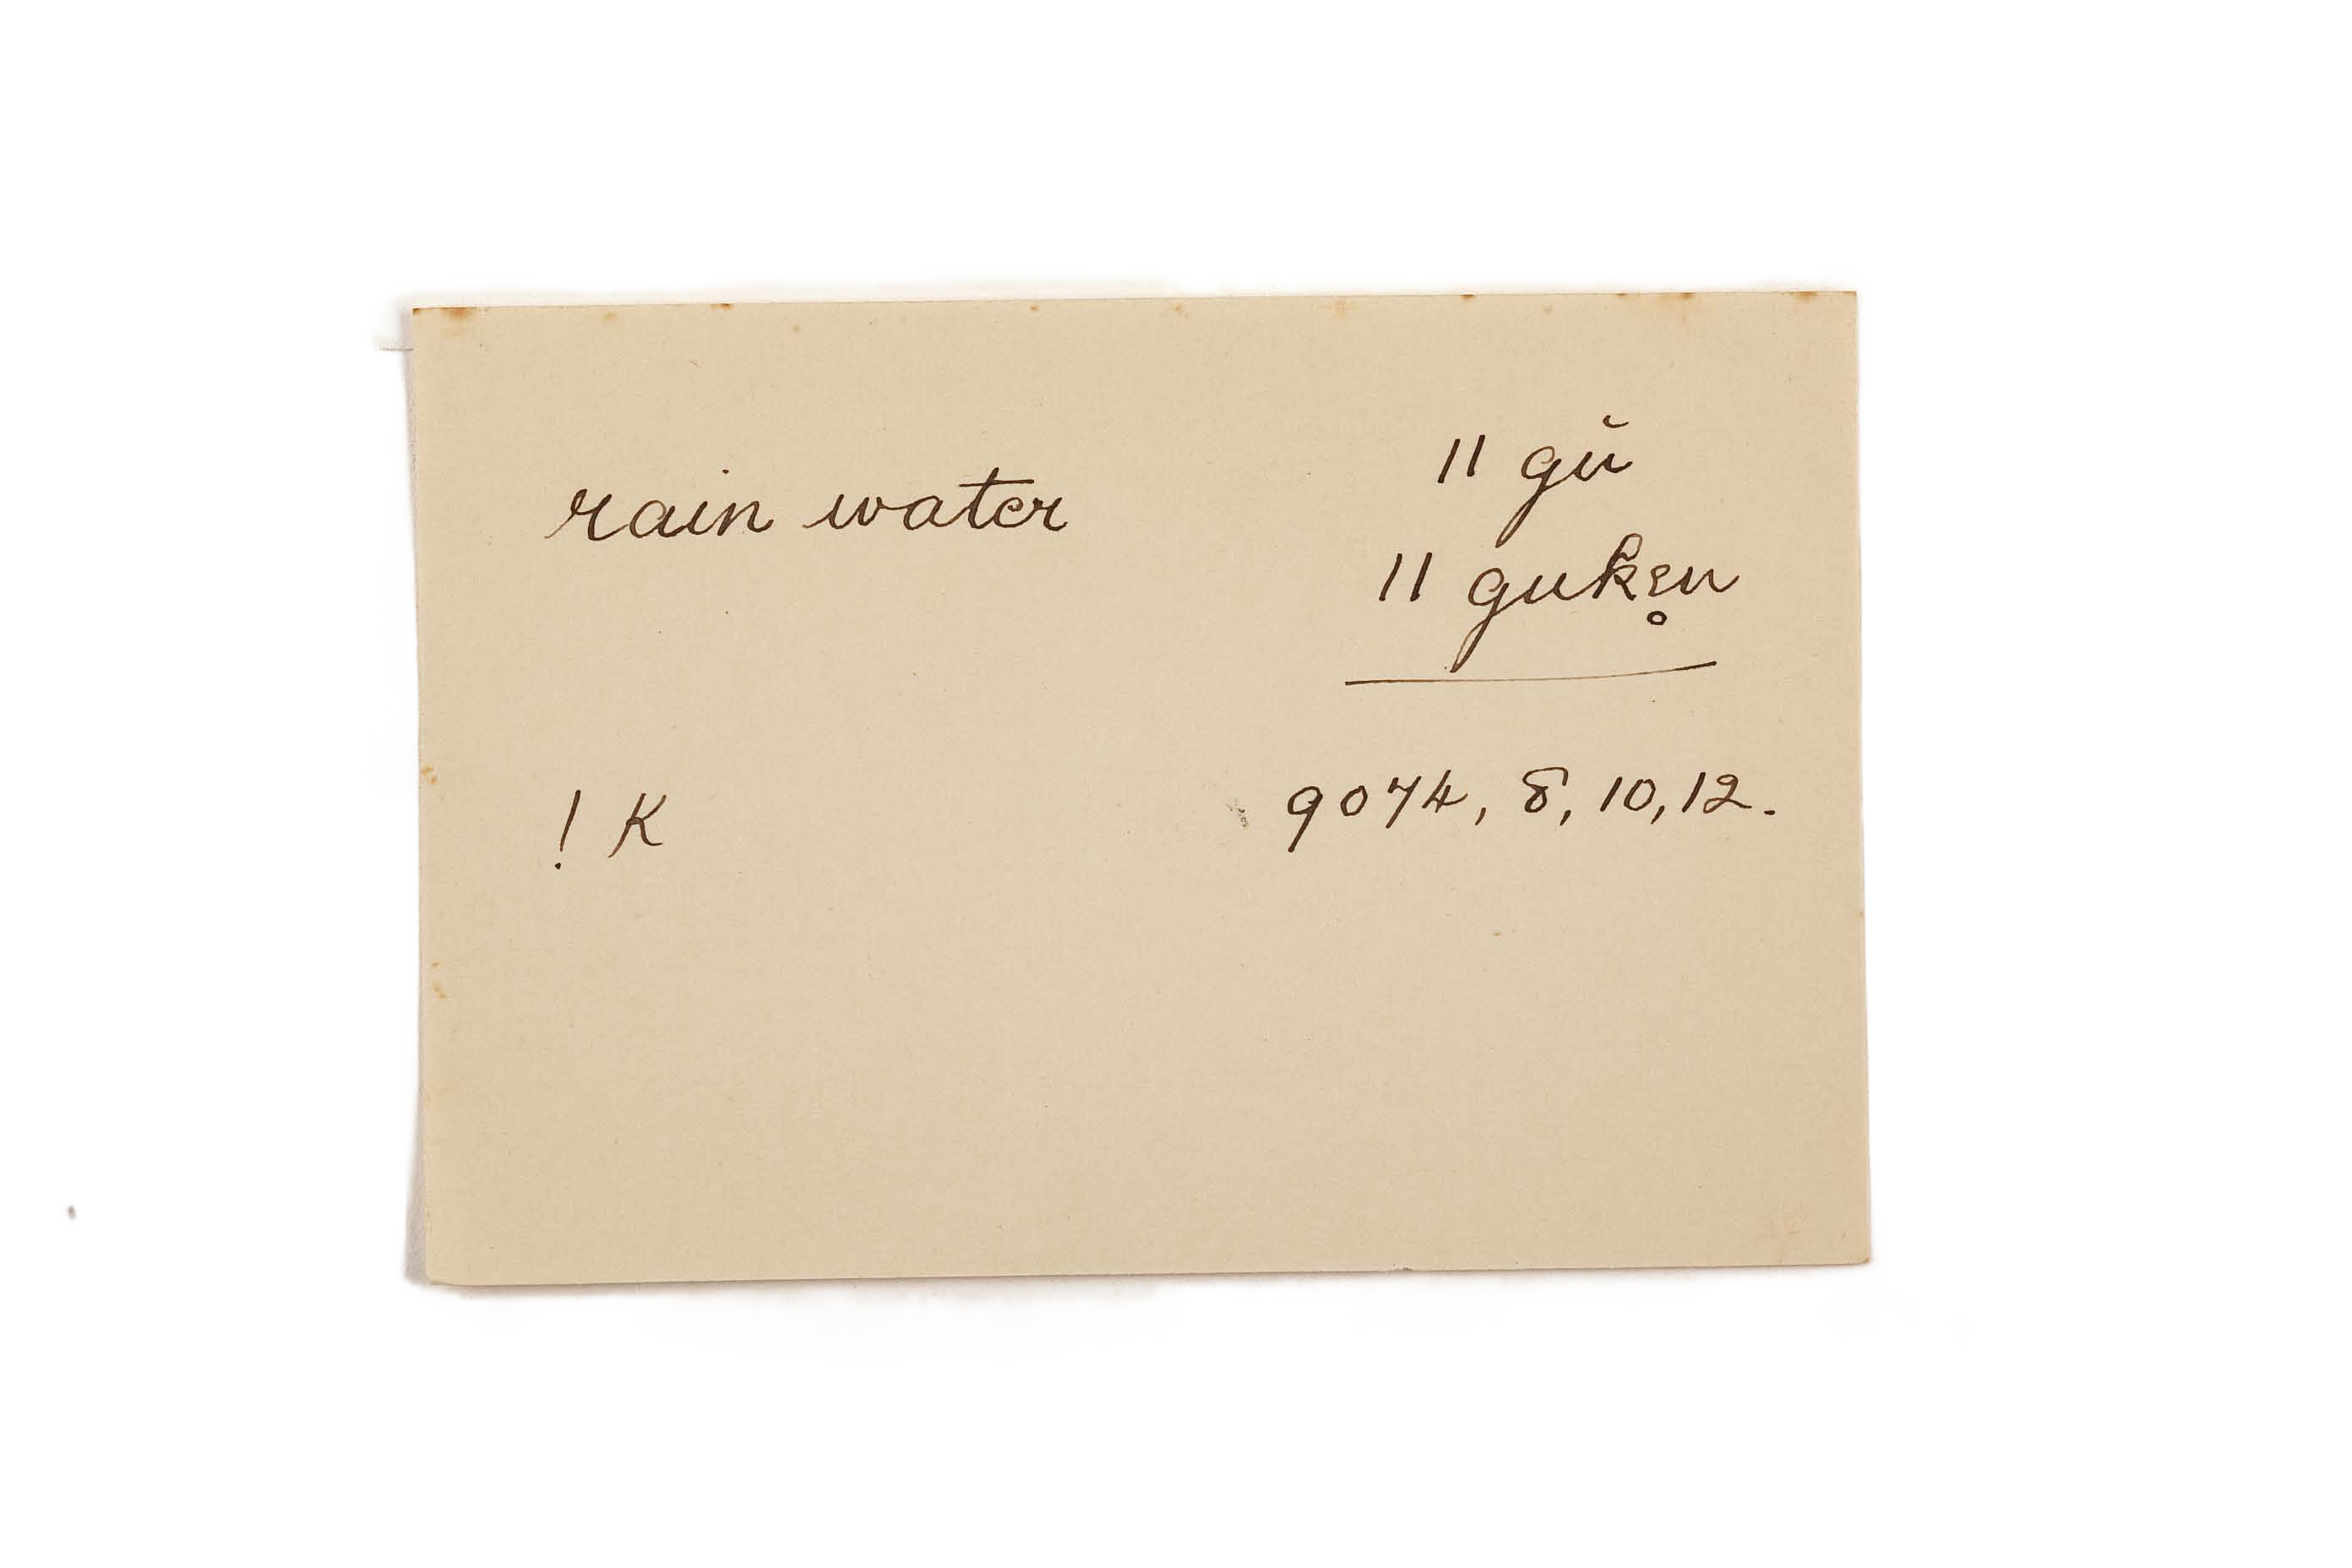 rain water
ǁ gŭ
ǁ guken̥
! K
9074, 8, 10, 12.